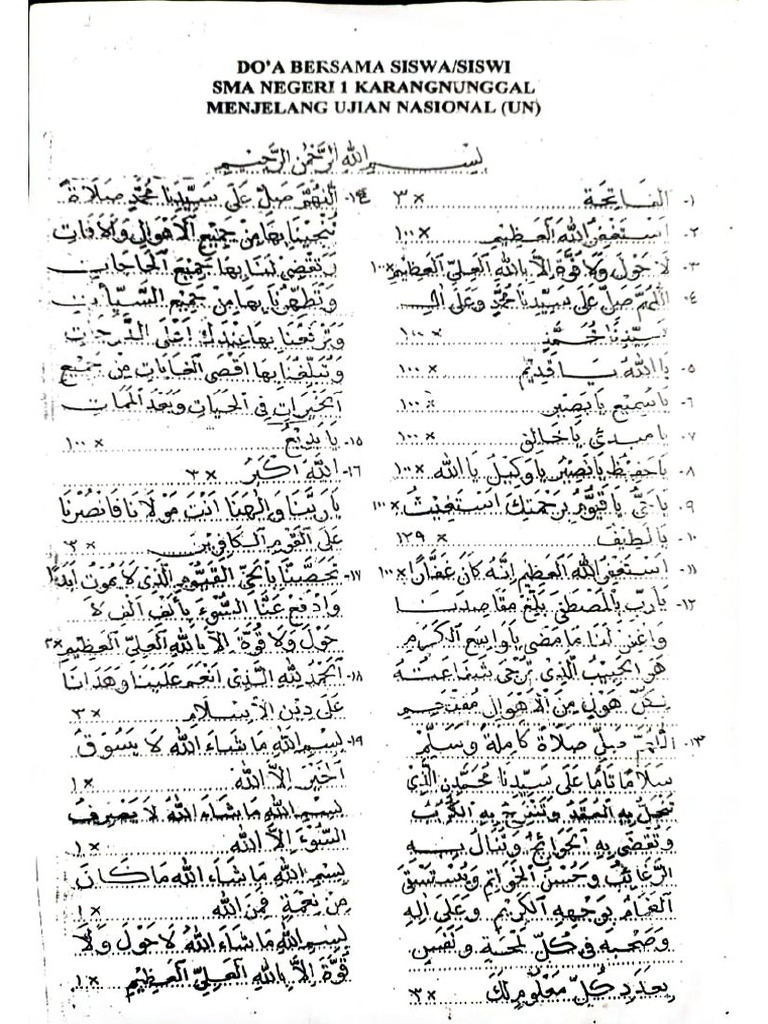 DO'A BERSAMA SISWA/SISWI
SMA NEGERI 1 KARANGNUNGGAL
MENJELANG UJIAN NASIONAL (UN)
بِسْمِ اللهِ الرَّحْمٰنِ الرَّحِيْمِ
١- الفاتحة ... ٣×
٢- اَسْتَغْفِرُ اللهَ الْعَظِيْمِ ... ١٠٠×
٣- لَا حَوْلَ وَلَا قُوَّةَ اِلَّا بِاللهِ الْعَلِيِّ الْعَظِيْمِ ١٠٠×
٤- اَللّٰهُمَّ صَلِّ عَلَى سَيِّدِنَا مُحَمَّدٍ وَعَلَى اٰلِ
سَيِّدِنَا مُحَمَّدٍ ... ١٠٠×
٥- يَا اَللهُ يَا قَدِيْمُ ... ١٠٠×
٦- يَا سَمِيْعُ يَا بَصِيْرُ ... ١٠٠×
٧- يَا مُبْدِئُ يَا خَالِقُ ... ١٠٠×
٨- يَا حَفِيْظُ يَا نَصِيْرُ يَا وَكِيْلُ يَا اَللهُ ... ١٠٠×
٩- يَا حَيُّ يَا قَيُّوْمُ بِرَحْمَتِكَ اَسْتَغِيْثُ ١٠٠×
١٠- يَا لَطِيْفُ ... ١٢٩×
١١- اَسْتَغْفِرُ اللهَ الْعَظِيْمَ اِنَّهُ كَانَ غَفَّارًا ١٠٠×
١٢- يَارَبِّ بِالْمُصْطَفَى بَلِّغْ مَقَاصِدَنَا
وَاغْفِرْ لَنَا مَا مَضَى يَا وَاسِعَ الْكَرَمِ
هُوَ الْحَبِيْبُ الَّذِيْ تُرْجَى شَفَاعَتُهُ
لِكُلِّ هَوْلٍ مِنَ الْاَهْوَالِ مُقْتَحِمِ
١٣- اَللّٰهُمَّ صَلِّ صَلَاةً كَامِلَةً وَسَلِّمْ
سَلَامًا تَامًّا عَلَى سَيِّدِنَا مُحَمَّدٍ الَّذِيْ
تَنْحَلُّ بِهِ الْعُقَدُ وَتَنْفَرِجُ بِهِ الْكُرَبُ
وَتُقْضَى بِهِ الْحَوَائِجُ وَتُنَالُ بِهِ
الرَّغَائِبُ وَحُسْنُ الْخَوَاتِمِ وَيُسْتَسْقَى
الْغَمَامُ بِوَجْهِهِ الْكَرِيْمِ وَعَلَى اٰلِهِ
وَصَحْبِهِ فِى كُلِّ لَمْحَةٍ وَنَفَسٍ
بِعَدَدِ كُلِّ مَعْلُوْمٍ لَكَ ... ٣×
١٤- اَللّٰهُمَّ صَلِّ عَلَى سَيِّدِنَا مُحَمَّدٍ صَلَاةً
تُنْجِيْنَا بِهَا مِنْ جَمِيْعِ الْاَهْوَالِ وَالْاٰفَاتِ
وَتَقْضِى لَنَا بِهَا جَمِيْعَ الْحَاجَاتِ
وَتُطَهِّرُنَا بِهَا مِنْ جَمِيْعِ السَّيِّأٰتِ
وَتَرْفَعُنَا بِهَا عِنْدَكَ اَعْلَى الدَّرَجَاتِ
وَتُبَلِّغُنَا بِهَا اَقْصَى الْغَايَاتِ مِنْ جَمِيْعِ
الْخَيْرَاتِ فِى الْحَيَاتِ وَبَعْدَ الْمَمَاتِ
١٥- يَا بَدِيْعُ ... ١٠٠×
١٦- اَللهُ اَكْبَرُ ... ٣×
يَا رَبَّنَا وَاِلٰهَنَا اَنْتَ مَوْلَانَا فَانْصُرْنَا
عَلَى الْقَوْمِ الْكَافِرِيْنَ ... ٣×
١٧- تَحَصَّنَّا بِالْحَيِّ الْقَيُّوْمِ الَّذِى لَا يَمُوْتُ اَبَدًا
وَادْفَعْ عَنَّا السُّوْءَ بِأَلْفِ اَلْفِ لَا
حَوْلَ وَلَا قُوَّةَ اِلَّا بِاللهِ الْعَلِيِّ الْعَظِيْمِ ٣×
١٨- اَلْحَمْدُ لِلّٰهِ الَّذِى اَنْعَمَ عَلَيْنَا وَهَدَانَا
عَلَى دِيْنِ الْاِسْلَامِ ... ٣×
١٩- بِسْمِ اللهِ مَا شَاءَ اللهُ لَا يَسُوْقُ
الْخَيْرَ اِلَّا اللهُ ... ١×
بِسْمِ اللهِ مَا شَاءَ اللهُ لَا يَصْرِفُ
السُّوْءَ اِلَّا اللهُ ... ١×
بِسْمِ اللهِ مَا شَاءَ اللهُ مَا كَانَ
مِنْ نِعْمَةٍ فَمِنَ اللهِ ... ١×
بِسْمِ اللهِ مَا شَاءَ اللهُ لَا حَوْلَ وَلَا
قُوَّةَ اِلَّا بِاللهِ الْعَلِيِّ الْعَظِيْمِ ... ١×